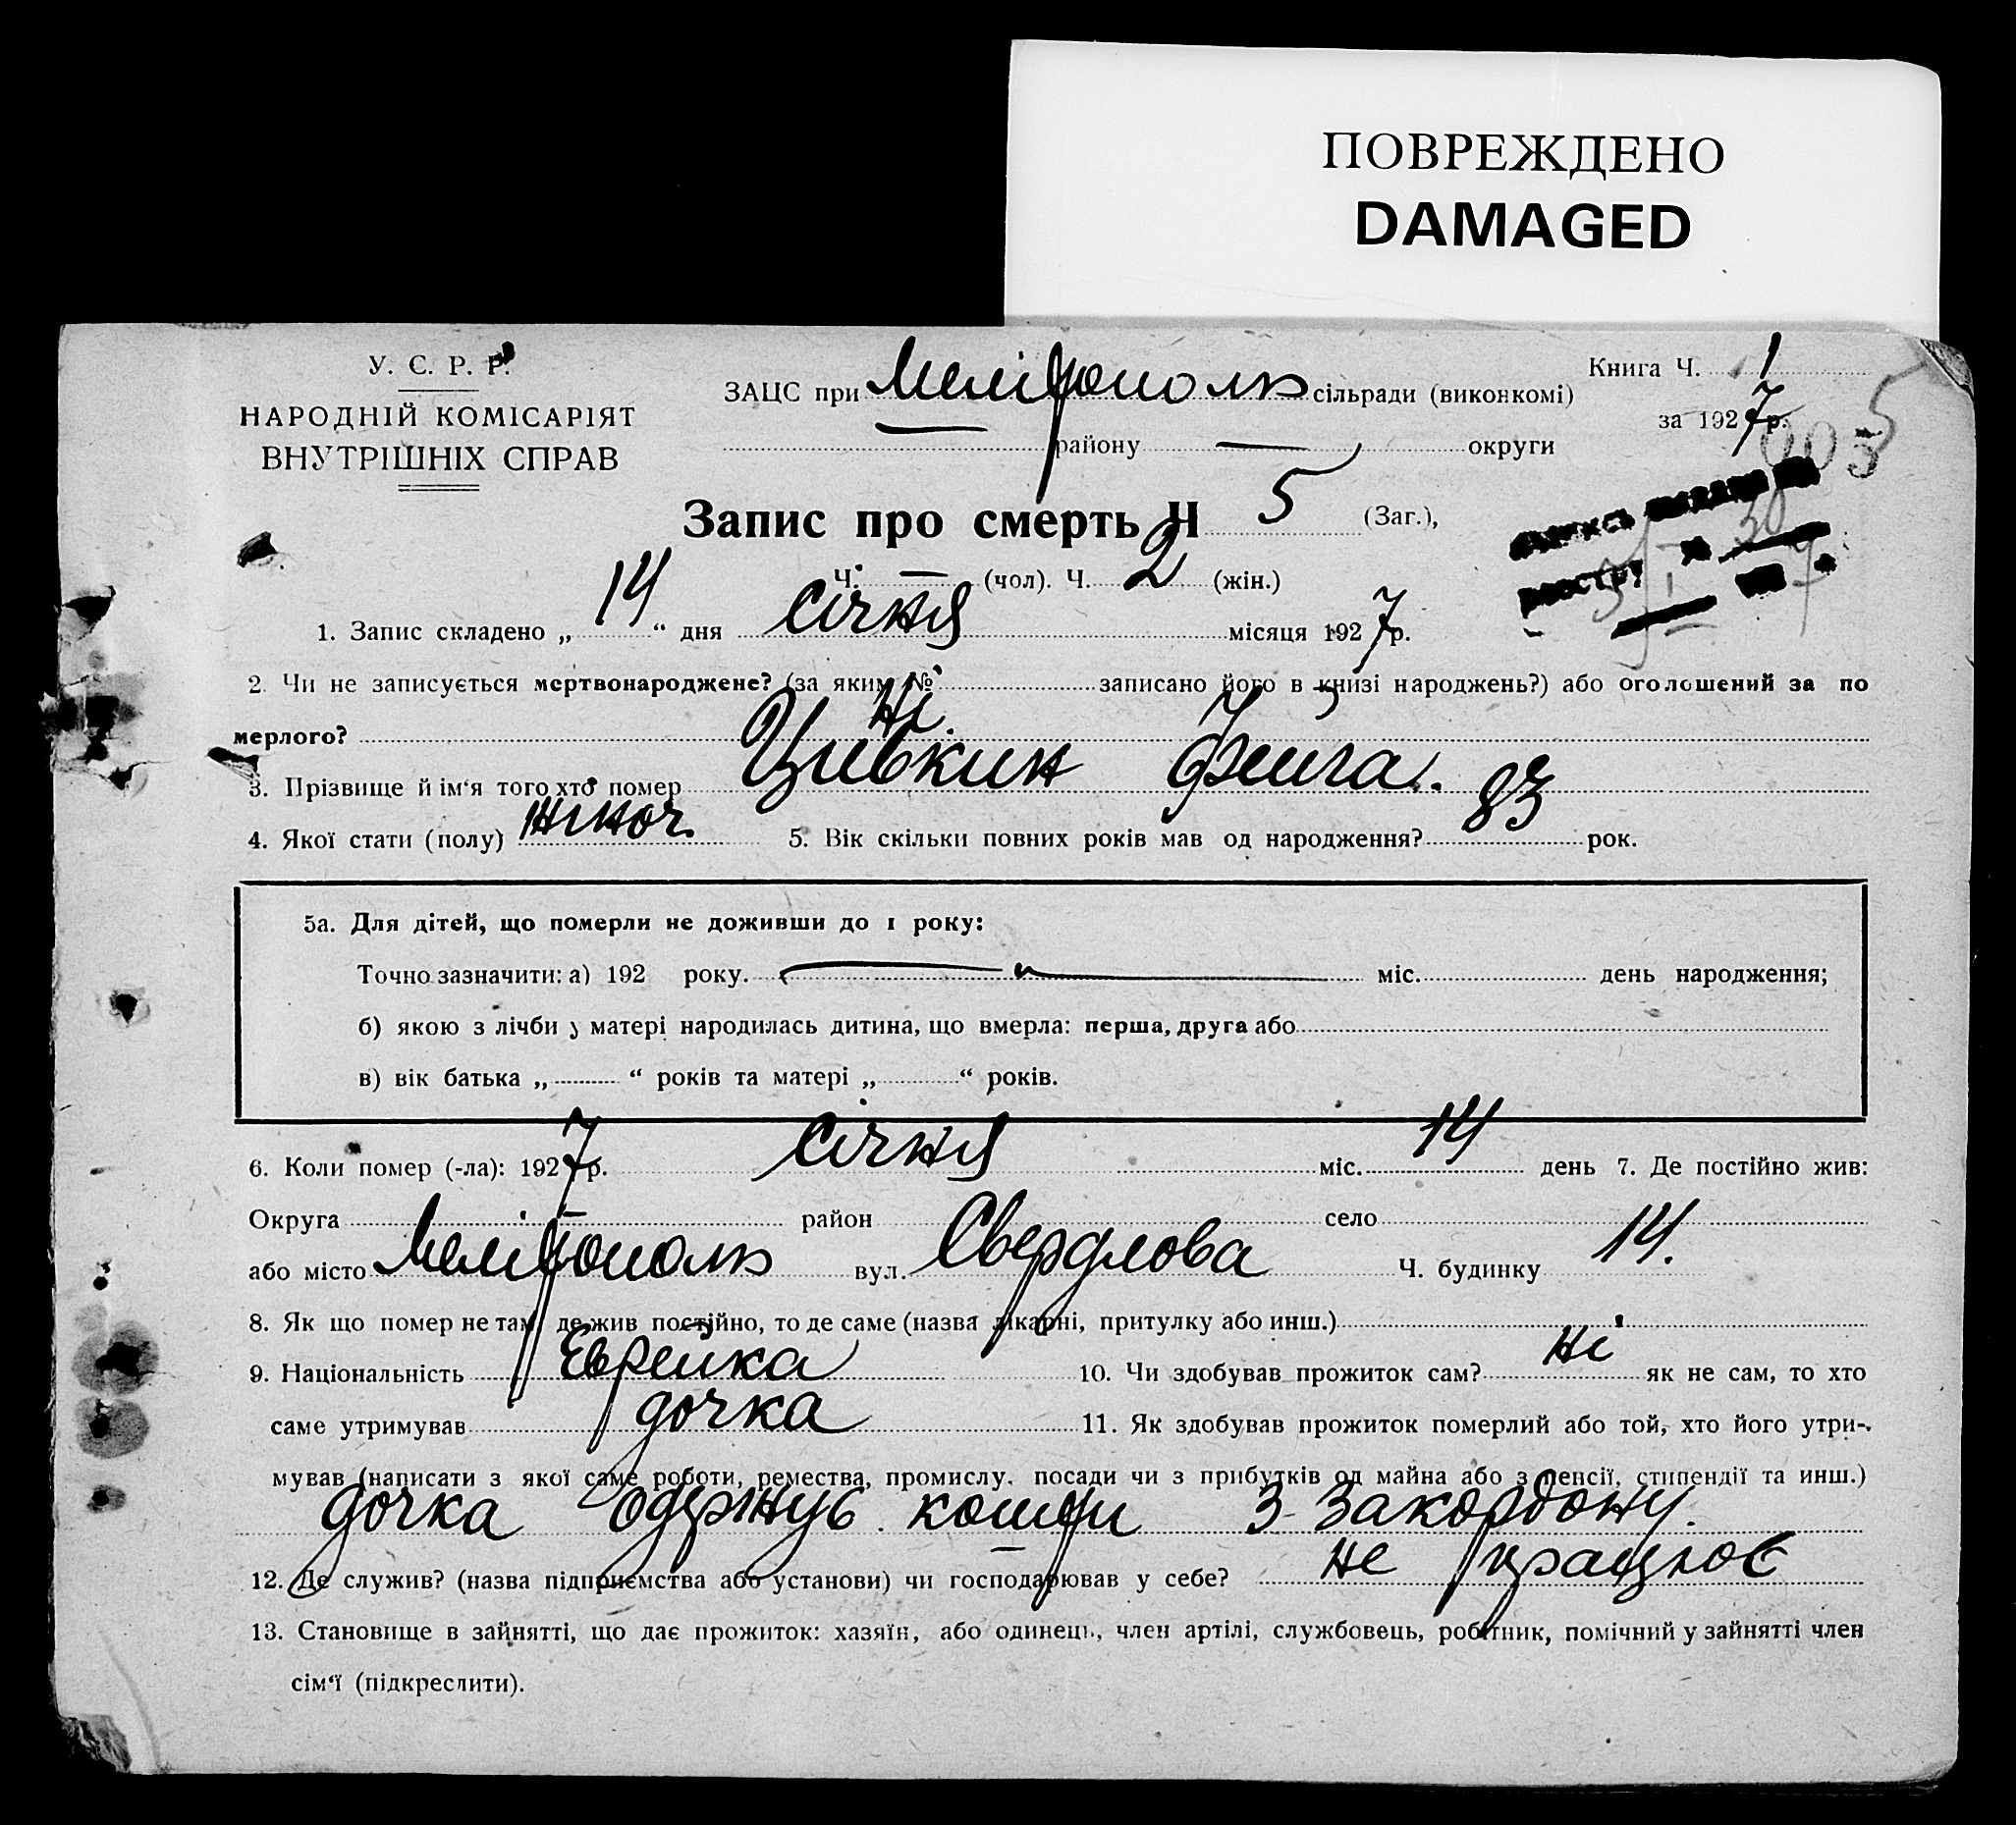 ПОВРЕЖДЕНО
DAMAGED
У. С. Р. Р.
НАРОДНІЙ КОМІСАРІЯТ
ВНУТРІШНІХ СПРАВ
ЗАЦС при Мелітополь сільради (виконкомі)
— району — округи
Книга Ч. 1
за 1927 р.
003
5
Запис про смерть Ч 5 (Заг.),
Ч. — (чол). Ч. 2 (жін.)
1. Запис складено „ 14 “ дня січня місяця 1927 р.
2. Чи не записується мертвонароджене? (за яким № записано його в книзі народжень?) або оголошений за по
мерлого? Ні.
3. Прізвище й ім‘я того хто помер Цивкин Фейга.
4. Якої стати (полу) жіноч. 5. Вік скільки повних років мав од народження? 83 рок.
5а. Для дітей, що померли не доживши до 1 року:
Точно зазначити: а) 192 року. міс. день народження;
б) якою з лічби у матері народилась дитина, що вмерла: перша, друга або
в) вік батька „ “ років та матері „ “ років.
6. Коли помер (-ла): 1927 р. січня міс. 14 день 7. Де постійно жив:
Округа — район село
або місто Мелітополь вул. Свердлова Ч. будинку 14.
8. Як що помер не там де жив постійно, то де саме (назва лікарні, притулку або инш.)
9. Національність Еврейка 10. Чи здобував прожиток сам? ні як не сам, то хто
саме утримував дочка 11. Як здобував прожиток померлий або той, хто його утри-
мував (написати з якої саме роботи, ремества, промислу, посади чи з прибутків од майна або з пенсії, стипендії та инш.)
дочка одержує кошти з закордону.
12. Де служив? (назва підприємства або установи) чи господарював у себе? не працює
13. Становище в зайнятті, що дає прожиток: хазяїн, або одинець, член артілі, службовець, робітник, помічний у зайнятті член
сім‘ї (підкреслити).